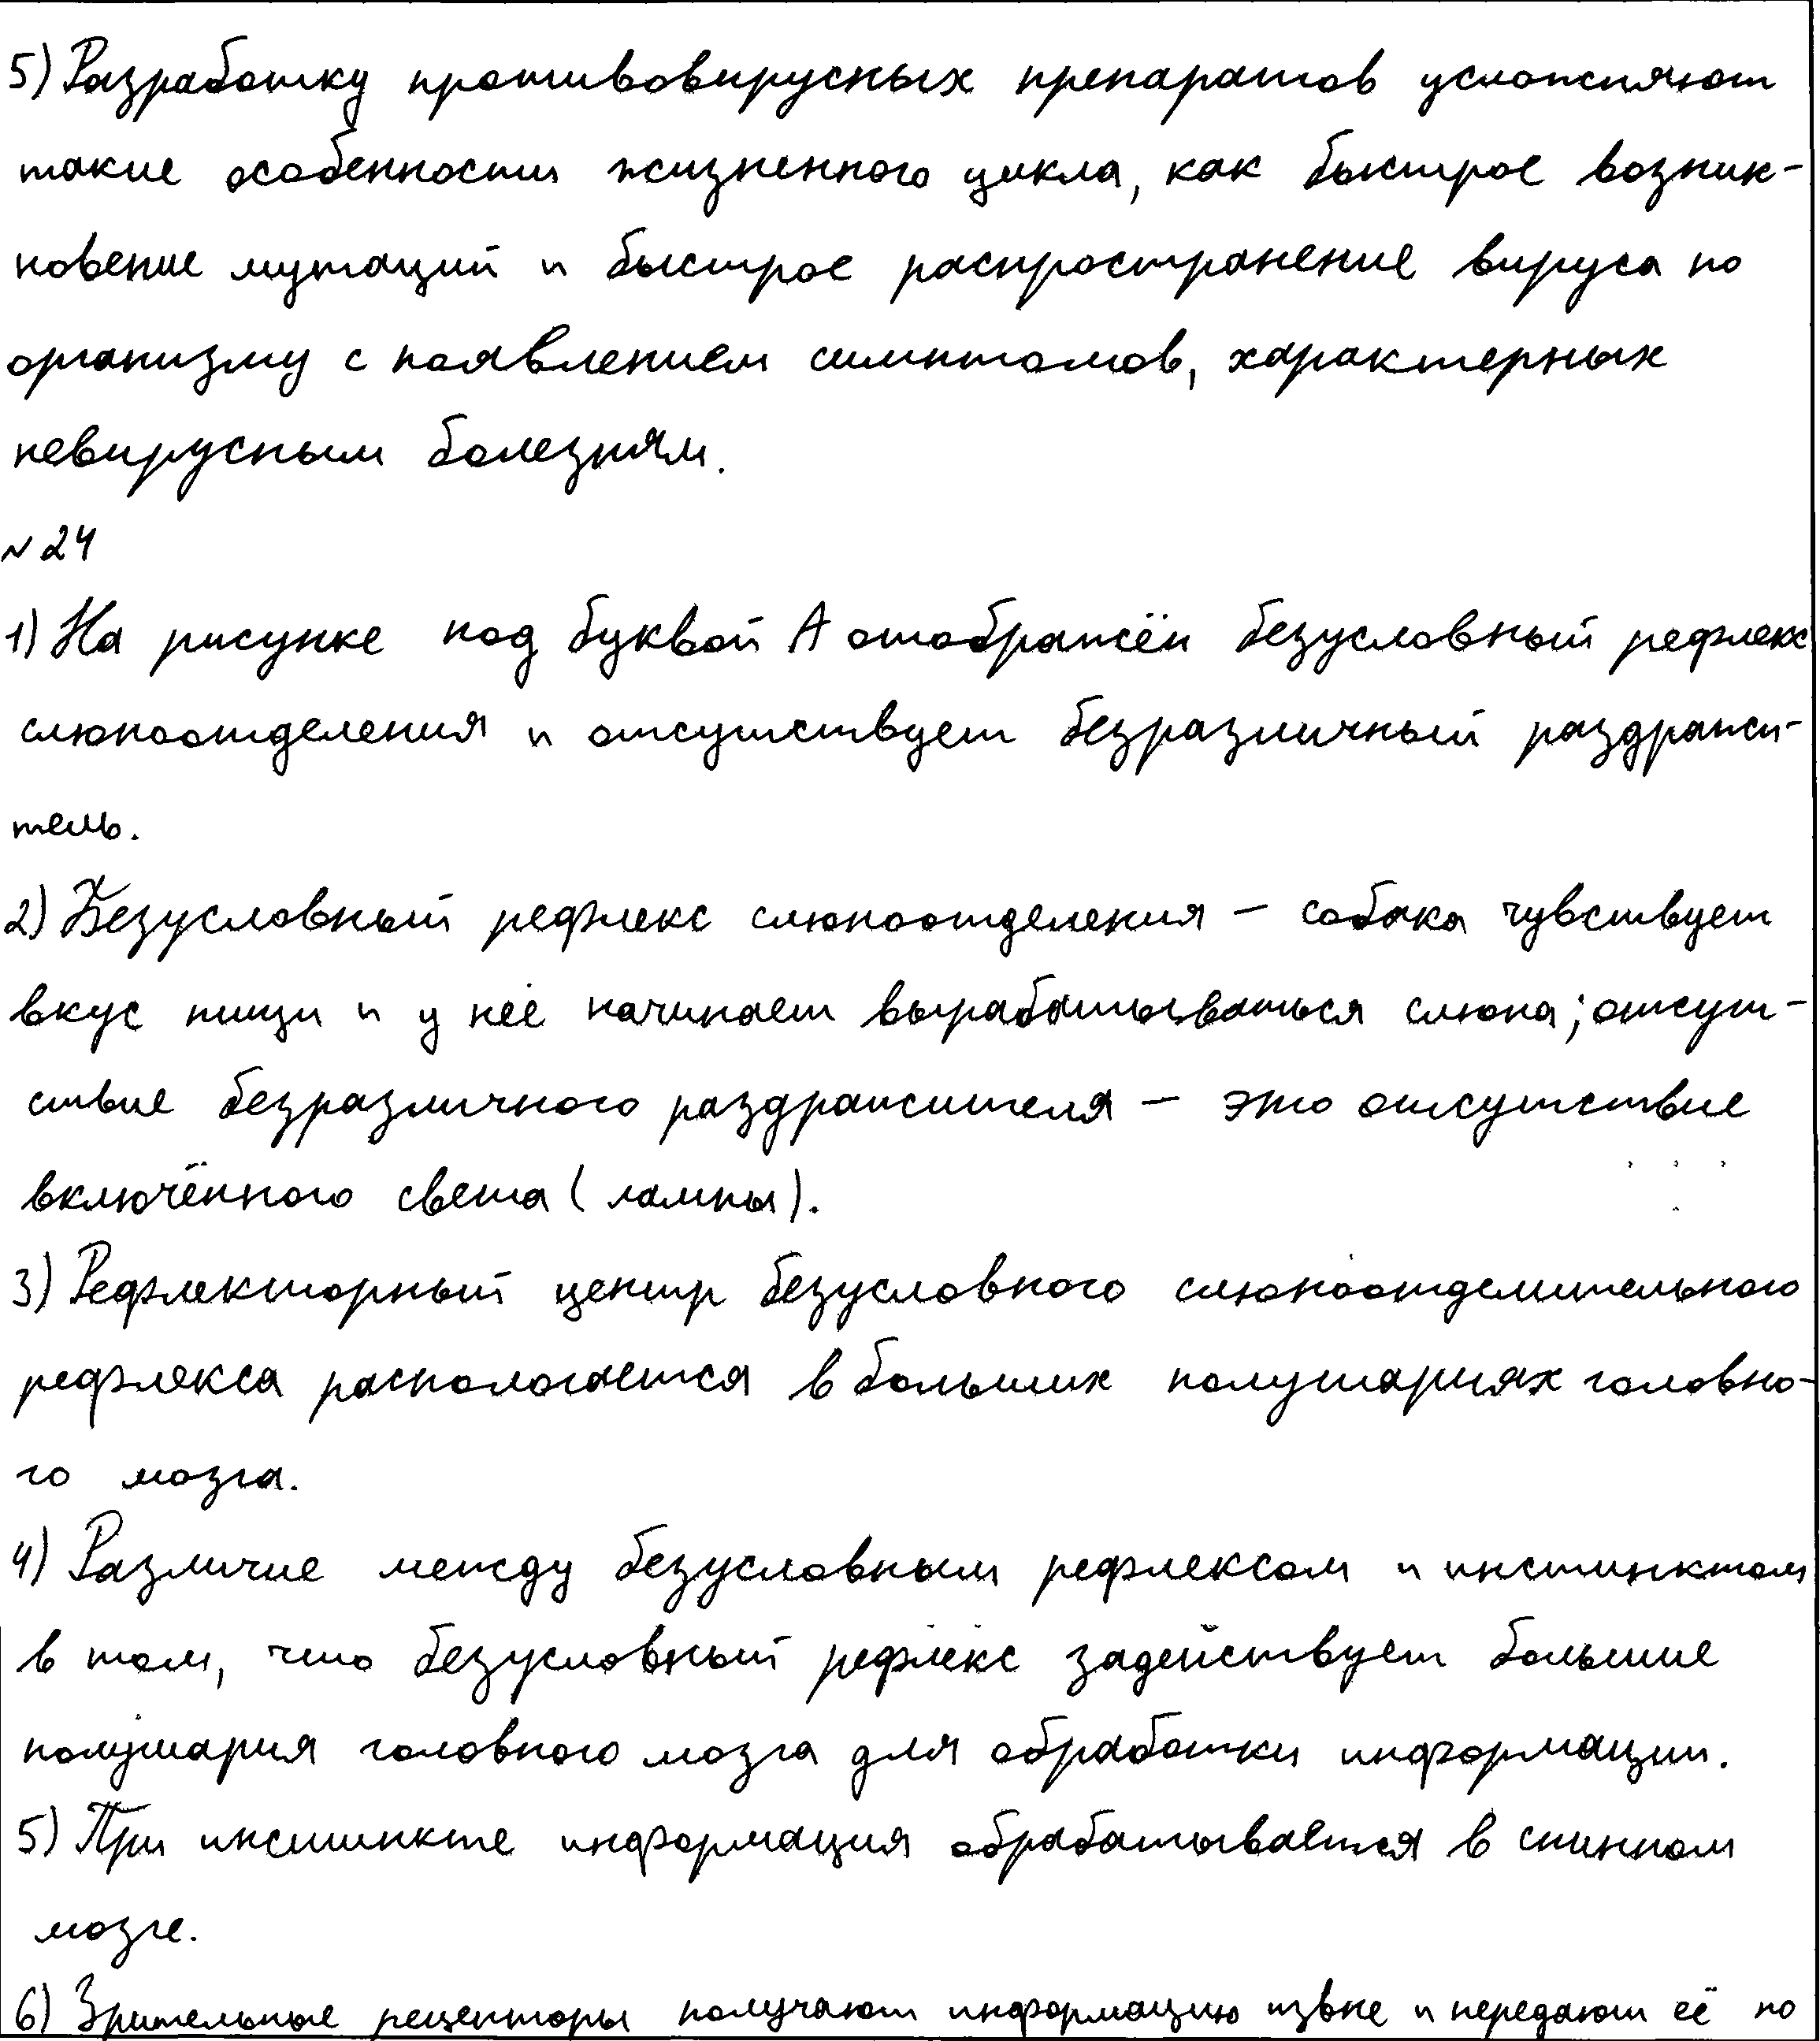 5) Разработку противовирусных препаратов усложняют
такие особенности жизненного цикла, как быстрое возник-
новение мутаций и быстрое распространение вируса по
организму с появлением симптомов, характерных
невирусным болезням.
№ 24
1) На рисунке под буквой А отображён безусловный рефлекс
слюноотделения и отсутствует безразличный раздражи-
тель.
2) Безусловный рефлекс слюноотделения – собака чувствует
вкус пищи и у неё начинает вырабатываться слюна; отсут-
ствие безразличного раздражителя – это отсутствие
включённого света (лампы).
3) Рефлекторный центр безусловного слюноотделительного
рефлекса распологается в больших полушариях головно-
го мозга.
4) Различие между безусловным рефлексом и инстинктом
в том, что безусловный рефлекс задействует большие
полушария головного мозга для обработки информации.
5) При инстинкте информация обрабатывается в спинном
мозге.
6) Зрительные рецепторы получают информацию извне и передают её по